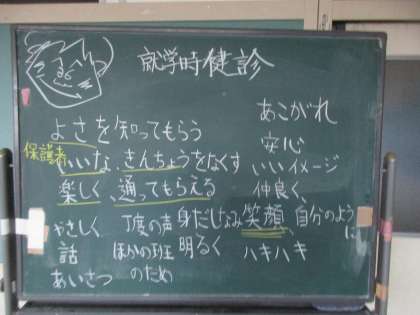 就学時健診
あこがれ
よさを知ってもらう
安心
保護者
いいな、きんちょうをなくす
いいイメージ
楽しく、通ってもらえる
仲良く、
やさしく
丁度の声
身だしなみ
笑顔、自分のように
話
ほかの班のため
明るく
ハキハキ
あいさつ